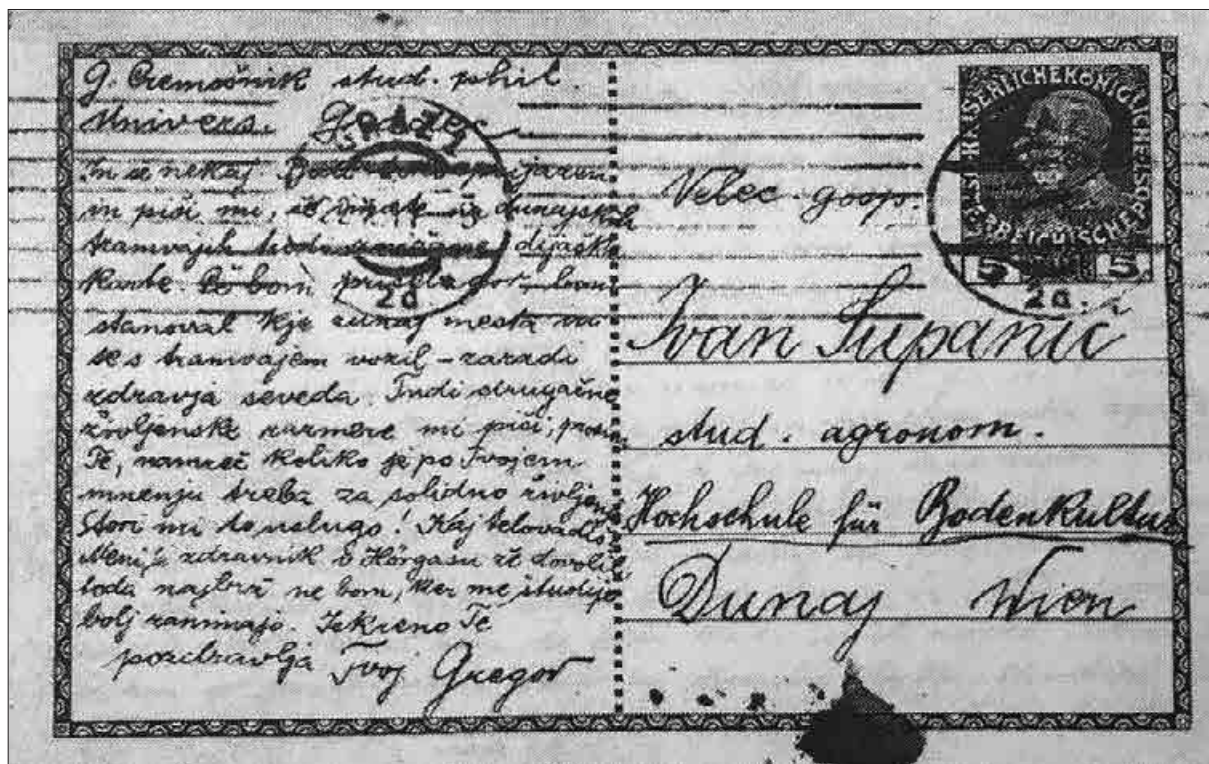 G. Čremošnik stud. phil.
Univers. Graz
In še nekaj. Bodi tako prijazen
in piši mi, če imate iz dunajskih
tramvajih tudi dijaške
karte. Če bom prišel gor bom
stanoval kje zunaj mesta in
se s tramvajem vozil – zaradi
zdravja seveda. Tudi drugačne
življenske razmere mi piši, prosim
Te, namreč koliko je po Tvojem
mnenju treba za solidno življenje
Stori mi to uslugo! Kaj telovadiš?
Meni je zdravnik v Hörgasu že dovolil,
toda najbrž ne bom, ker me študije
bolj zanimajo. Iskreno Te
pozdravlja Tvoj Gregor
GRAZ 1
2d
KAISERLICHE KÖNIGLICHE ÖSTERREICHISCHE POST
5 5
2d
Velec. gosp.
Ivan Županić
stud. agronom.
Hochschule für Bodenkultur
Dunaj Wien